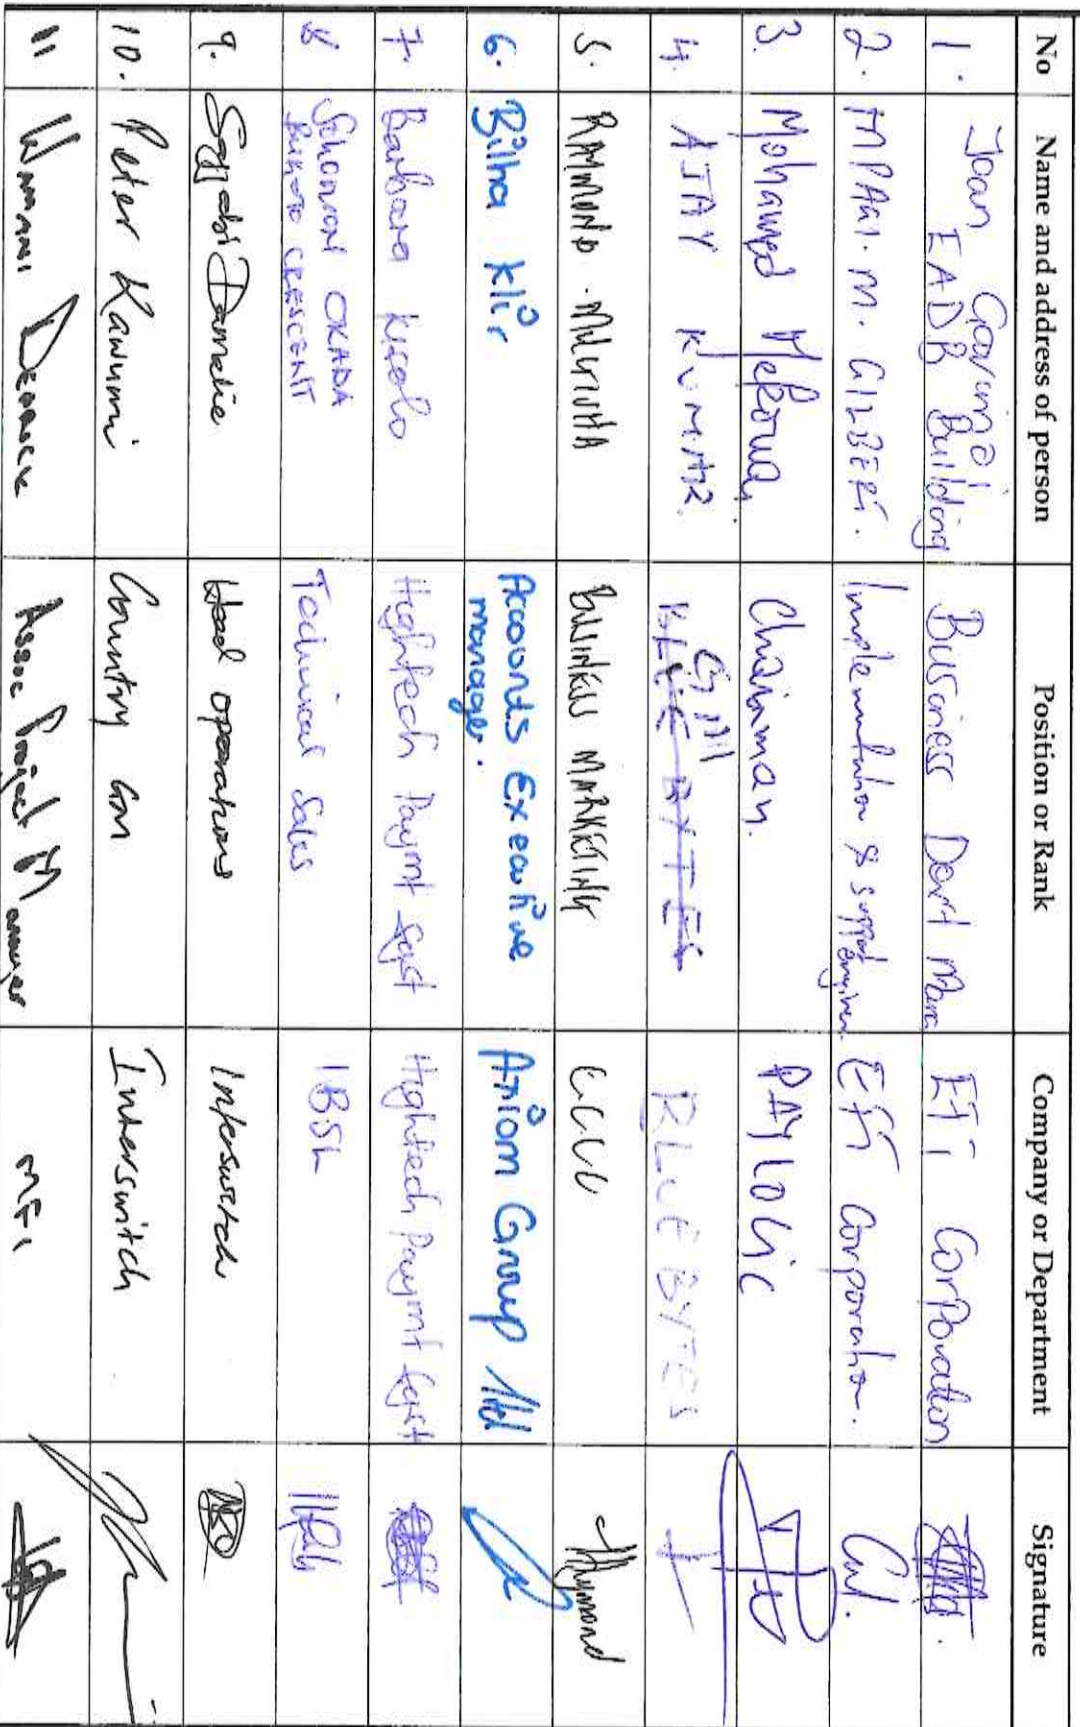 No Name and address of person Position or Rank Company or Department Signature
1. Joan EADB Building Business Devt EFT Corporation
2. M. GILBERT. Implementation & support engineer EFT Corporation.
3. Mohamed Chairman. PAYLOGIC
4. AJAY KUMAR. GM BLUE BYTES
5. RAYMOND BUSINESS MARKETING
6. Bilha Klir Accounts Executive manager. Axiom Group Ltd
7. Barbara Hightech Paymt Syst Hightech Paymt Syst
8 SOLOMON OKADA CRESCENT Technical Sales IBSL
9. Damalie Head operations Interswitch
10. Peter Kawumi Country GM Interswitch
11 Assoc Project Manager MFI